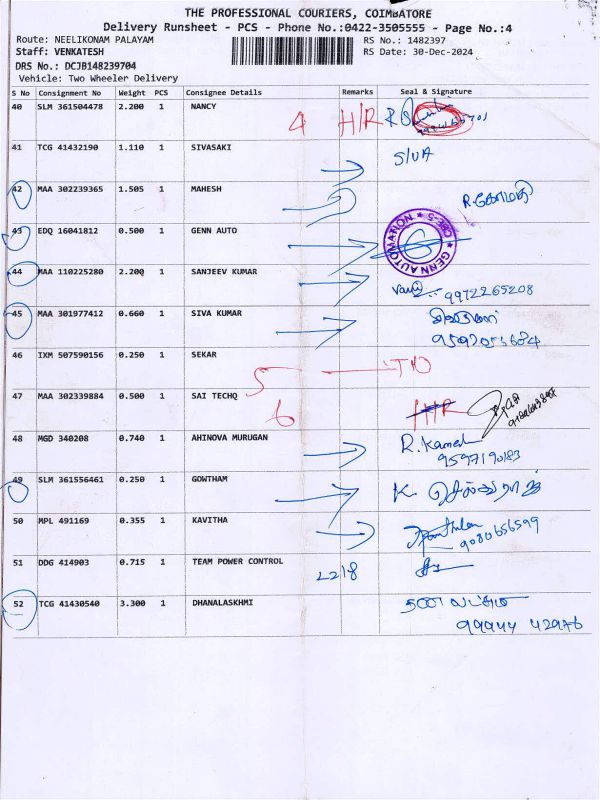 THE PROFESSIONAL COURIERS, COIMBATORE
Delivery Runsheet - PCS - Phone No.:0422-3505555 - Page No.:4
Route: NEELIKONAM PALAYAM
RS No.: 1482397
Staff: VENKATESH
RS Date: 30-Dec-2024
DRS No.: DCJB148239704
Vehicle: Two Wheeler Delivery
S No Consignment No Weight PCS Consignee Details Remarks Seal & Signature
40 SLM 361504478 2.200 1 NANCY 4 H/R
41 TCG 41432190 1.110 1 SIVASAKI SIVA
42 MAA 302239365 1.505 1 MAHESH R.கோமதி
43 EDQ 16041812 0.500 1 GENN AUTO GENN AUTOMATION CBE-5
44 MAA 110225280 2.200 1 SANJEEV KUMAR 9972265208
45 MAA 301977412 0.660 1 SIVA KUMAR
46 IXM 507590156 0.250 1 SEKAR 5
47 MAA 302339884 0.500 1 SAI TECHQ 6 H/R
48 MGD 340208 0.740 1 AHINOVA MURUGAN R. Kamesh
9597190183
49 SLM 361556461 0.250 1 GOWTHAM K. செல்வராஜ்
50 MPL 491169 0.355 1 KAVITHA 9080656599
51 DDG 414903 0.715 1 TEAM POWER CONTROL 2218
52 TCG 41430540 3.300 1 DHANALASKHMI
99944 42976